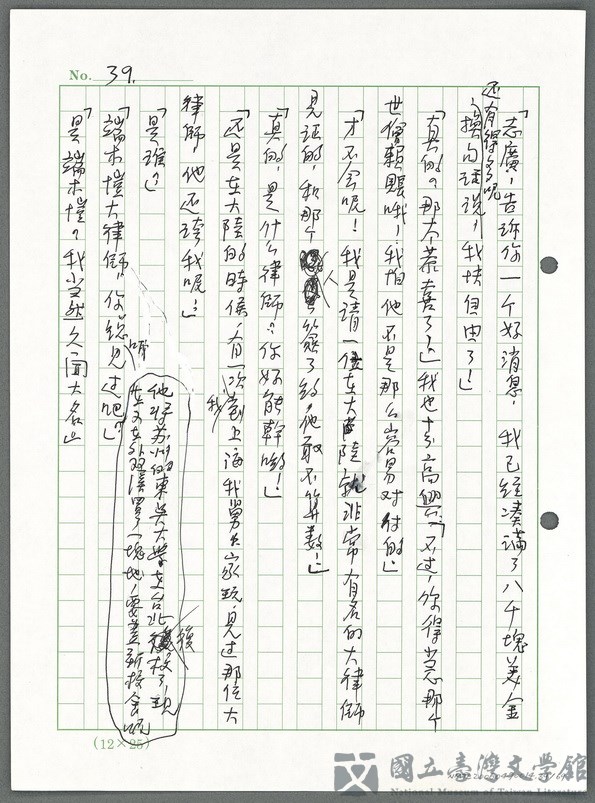 No. 39.
「志廣，告訴你一个好消息，我已經湊滿了八千塊美金
还有得多呢
，換句話說，我快自由了！」
「真的？那太恭喜了！」我也十分高興。「不过，你得当心那个
世僧賴賬哦！我怕他不是那么容易对付的。」
「才不会呢！我是請一位在大陸就非常有名的大律師
見证的，和那个人簽了約，他敢不算數！」
「真的，是什么律師？你好能幹喲！」
「还是在大陸的時侯，有一次我到上海我舅公家玩，見过那位大
律師，他还誇我呢！」
「是誰？」
「端木愷大律師，你總見过吧？」
他將苏州的東吳大學在台北復校了，現
在又在外双溪買了一塊地，要蓋新校舍呢
「是端木愷？我当然久聞大名。」
(12×25)
國立臺灣文學館
National Museum of Taiwan Literature